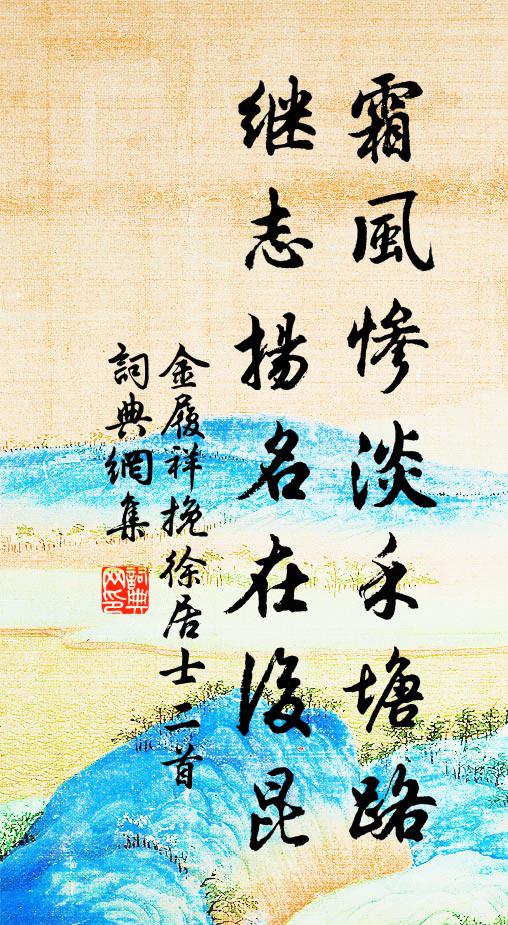 霜風慘淡禾塘路
继志揚名在後昆
金履祥挽徐居士二首
詞典網集
詞典網印